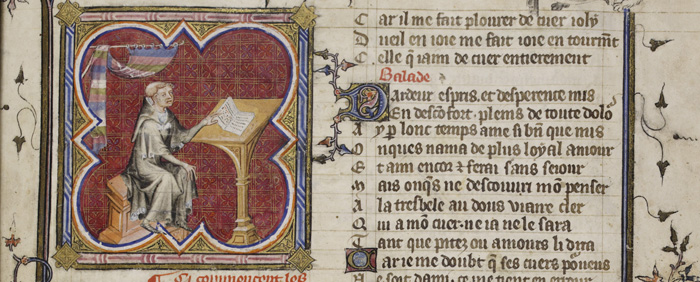 Car il me fait plourer de cuer ioly
Dueil en ioie me fait ioie en tourmt
Celle q̃ iaim de cuer entierement
Balade
Dardeur espris. et desperence mis
En desconfort. pleins de toute dolor
Ay p lonc temps ame si bñ que mis
Onques nama de plus loyal amour
Et aim encor ⁊ ferai sans seiour
Mais onq̃s ne descouuri mõ penser
A la tresbele au dous viaire cler
Qui a mõ cuer. ne ia ne le sara
Tant que pitez ou amours li dira
Car ie me doubt q̃ ses cuers
Ne soit dami. ce me tient en errour
Ci commencent les